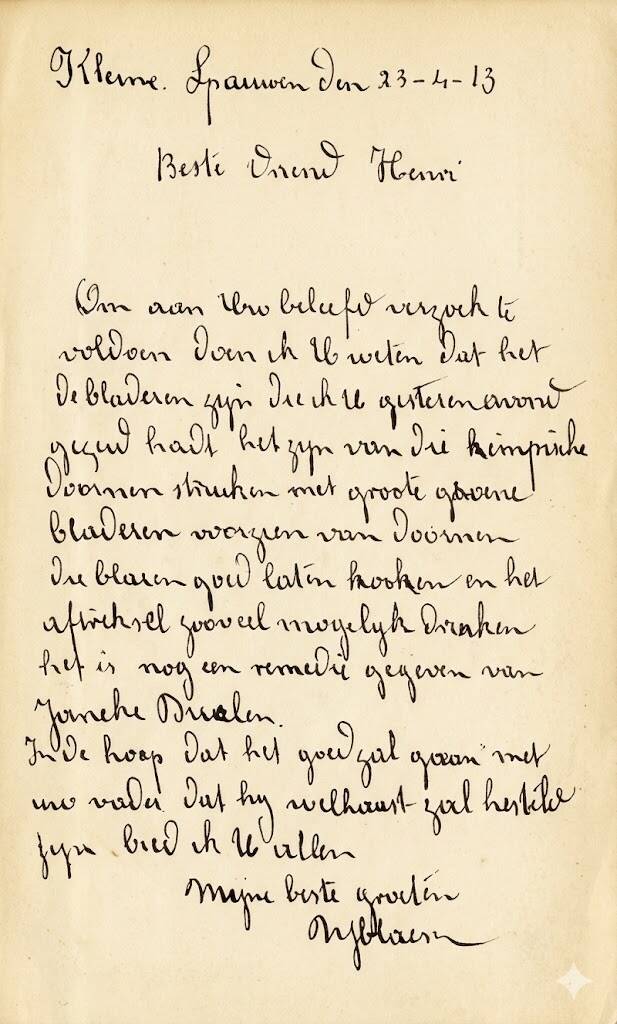 Kleine. Spauwen den 23-4-13
Beste vriend Henri
Om aan Uw beleefd verzoek te
voldoen doen ik U weten dat het
de bladeren zijn die ik U gisteren avond
gezeid hadt het zyn van die kempische
doornen struiken met groote groene
bladeren voorzien van doornen
die blaren goed laten kooken en het
aftreksel zooveel mogelyk drinken
het is nog een remedie gegeven van
Janeke
In de hoop dat het goed zal gaan met
uw vader dat hy welhaast zal hersteld
zyn bied ik U allen
Mijne beste groeten